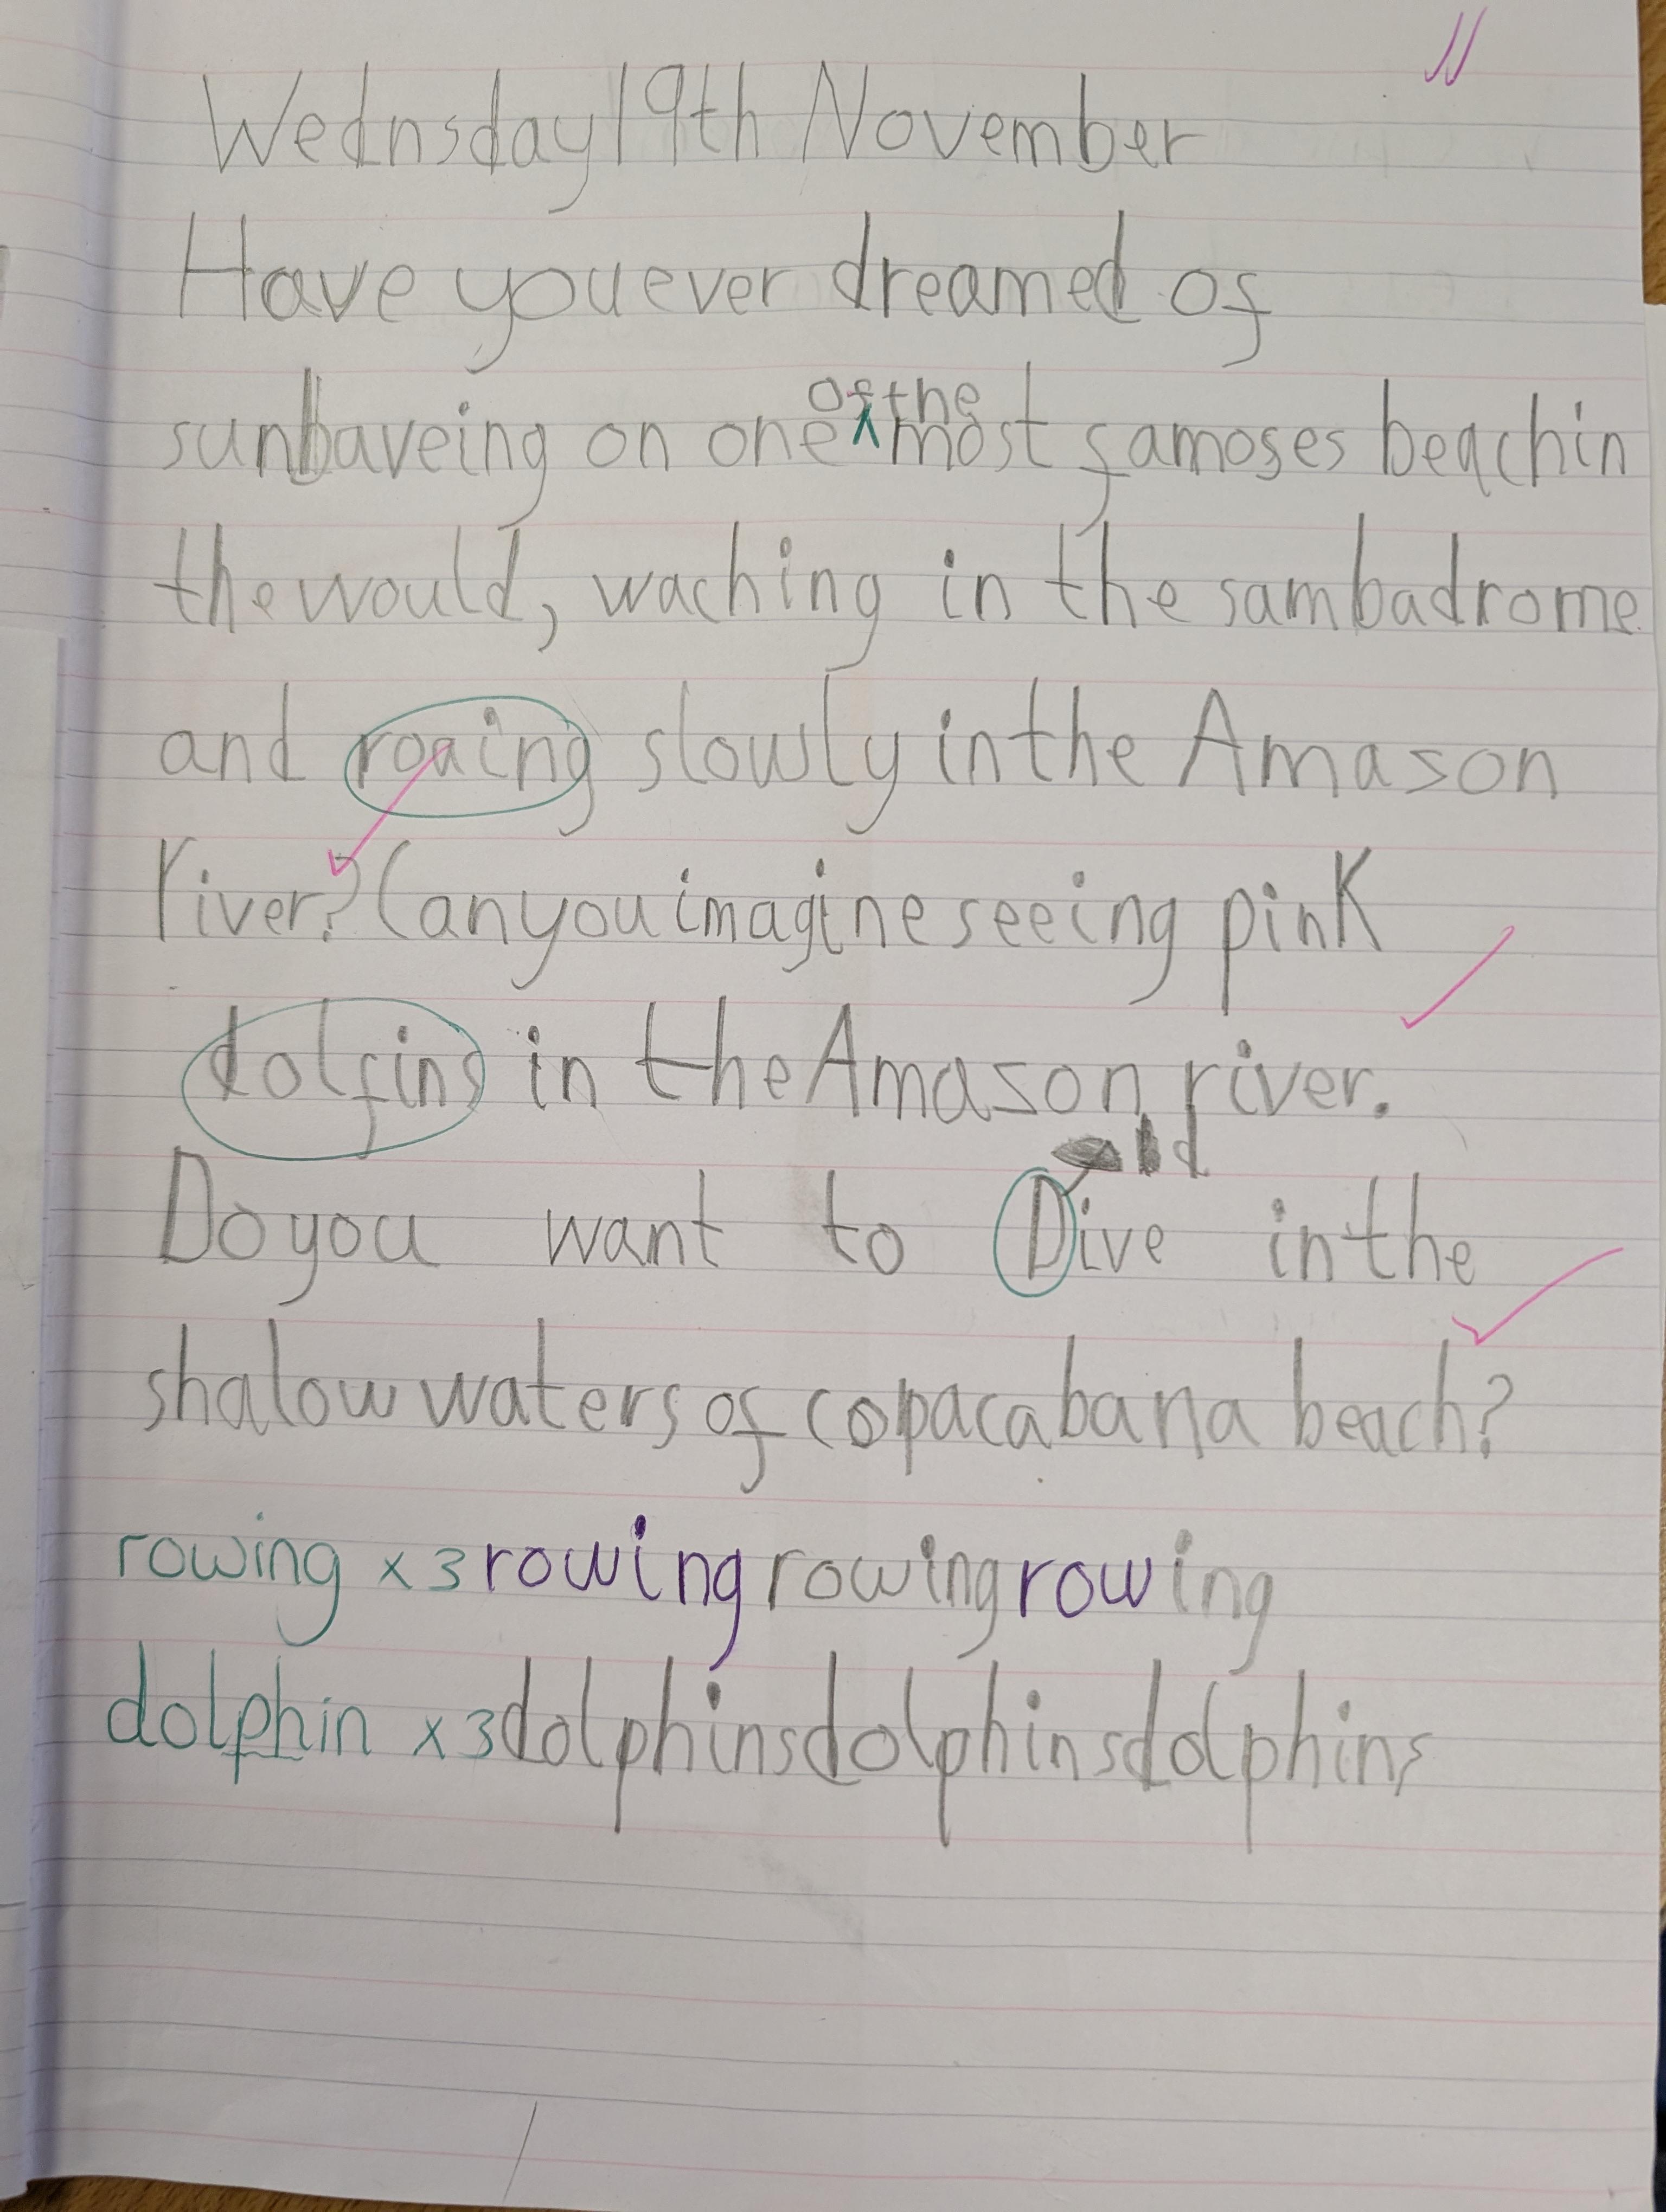 Wednsday 19th November
Have you ever dreamed of
of the
sunbaveing on one most famoses beach in
the would, waching in the sambadrome
and roaing slowly in the Amason
river? Can you imagine seeing pink
dolfins in the Amason river.
d
Do you want to Dive in the
shalow waters of copacabana beach?
rowing x3 rowing rowing rowing
dolphin x3 dolphins dolphins dolphins